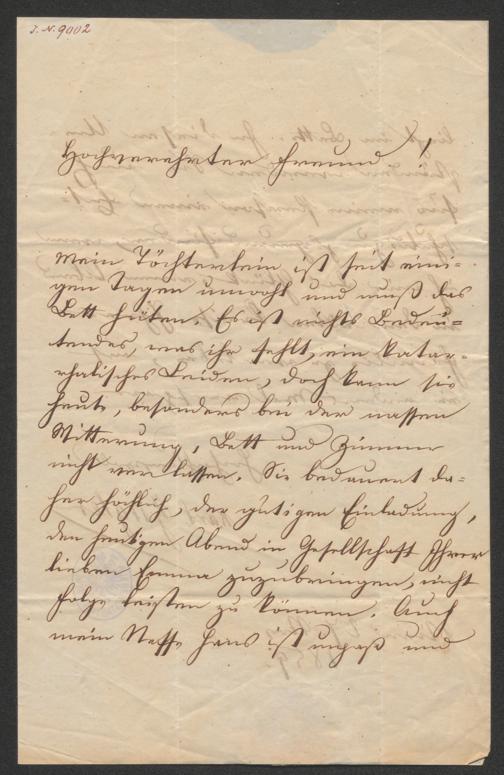 J. N. 9002
Hochverehrter Freund!
Mein Töchterlein ist seit eini=
gen Tagen unwohl und muß das
Bett hüten. Es ist nichts Bedeu=
tendes, was ihr fehlt, ein katar=
rhalisches Leiden, doch kann sie
heute, besonders bei der nassen
Witterung, Bett und Zimmer
nicht verlassen. Sie bedauert da=
her höchlich, der gütigen Einladung,
den heutigen Abend in Gesellschaft Ihrer
lieben Emma zuzubringen, nicht
Folge leisten zu können. Auch
mein Neffe Hans ist unpaß und